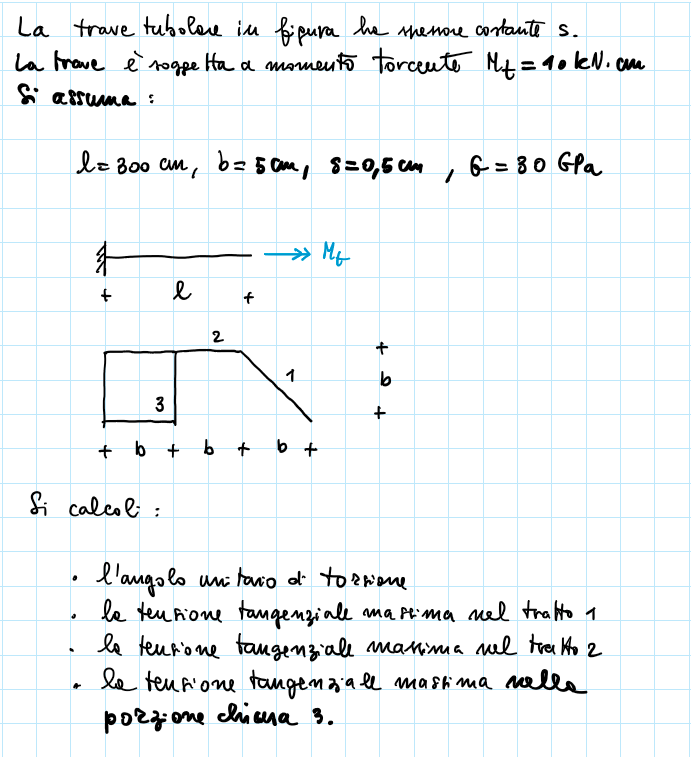 La trave tubolare in figura ha spessore costante s.
La trave è soggetta a momento torcente Mt = 10 kN·cm
Si assuma :
l = 300 cm, b = 5 cm, s = 0,5 cm , G = 80 GPa
Mt
+ l +
2
+
1
b
3
+
+ b + b + b +
Si calcoli :
• l'angolo unitario di torsione
• la tensione tangenziale massima nel tratto 1
• la tensione tangenziale massima nel tratto 2
• la tensione tangenziale massima nella
porzione chiusa 3.